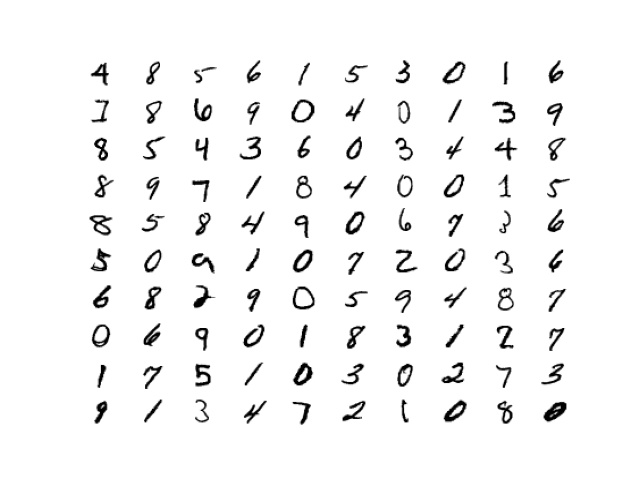 4 8 5 6 1 5 3 0 1 6
1 8 6 9 0 4 0 1 3 9
8 5 4 3 6 0 3 4 4 8
8 9 7 1 8 4 0 0 1 5
8 5 8 4 9 0 6 7 3 6
5 0 9 1 0 7 2 0 3 6
6 8 2 9 0 5 9 4 8 7
0 6 9 0 1 8 3 1 2 7
1 7 5 1 0 3 0 2 7 3
9 1 3 4 7 2 1 0 8 0